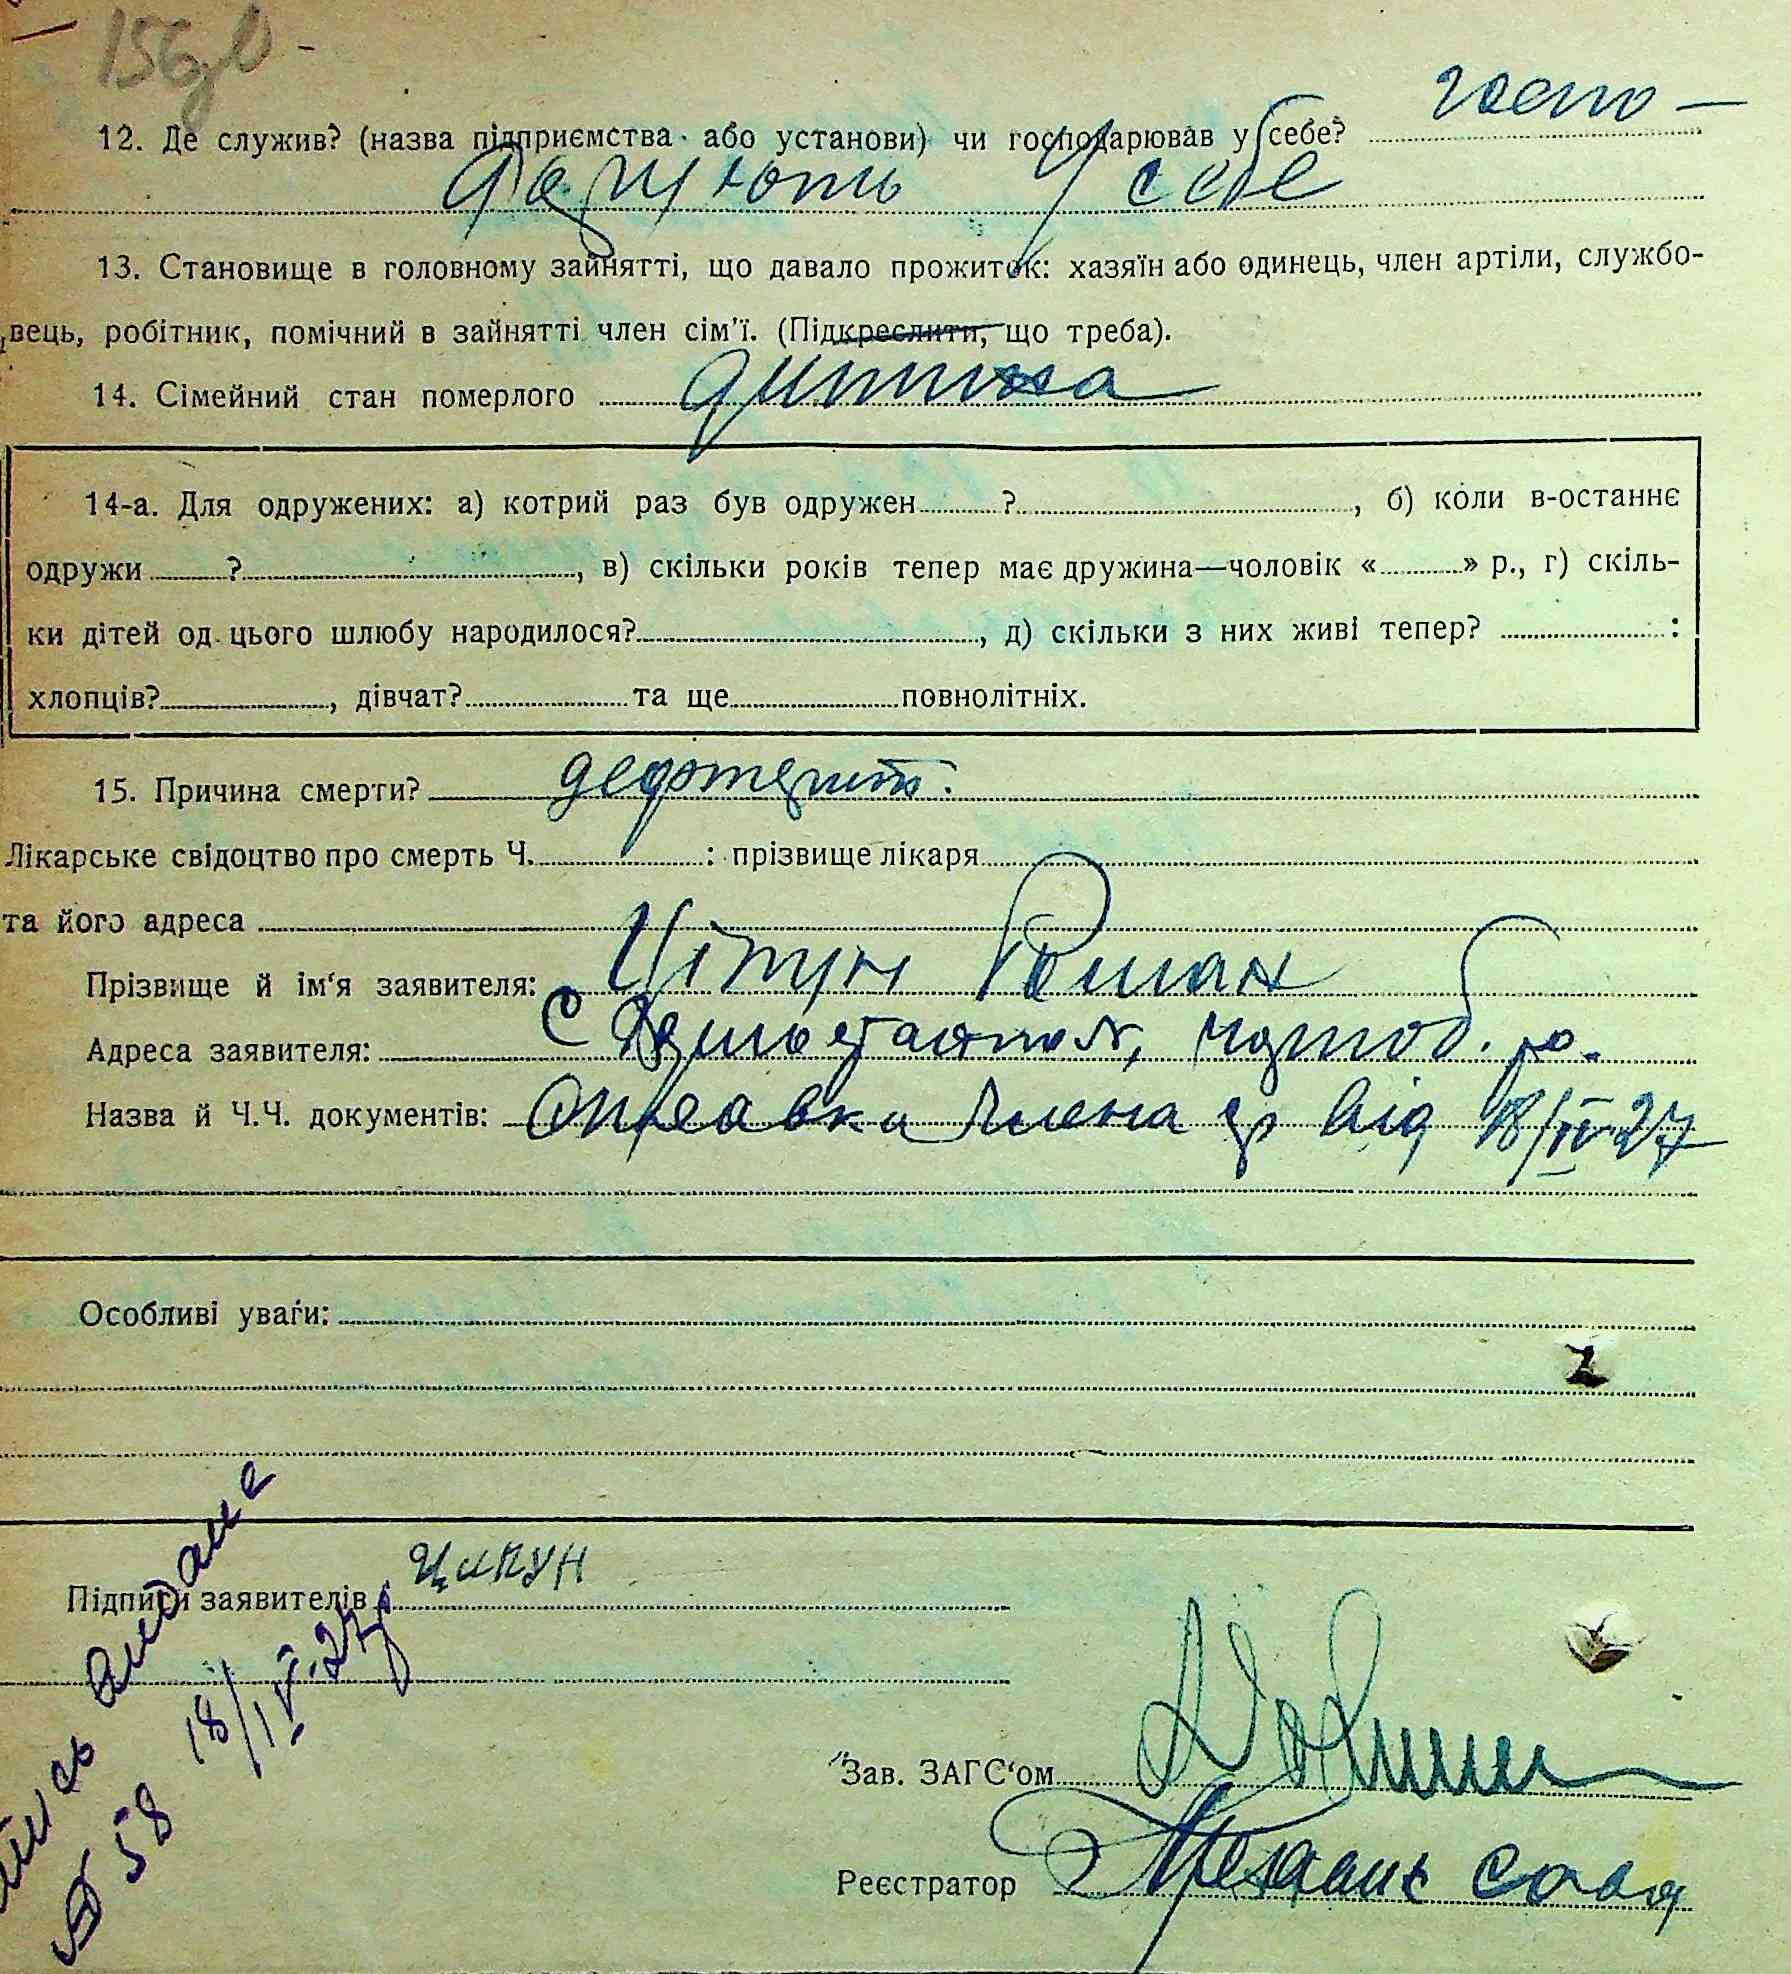 156
12. Де служив? (назва підприємства або установи) чи господарював у себе? госпо-
дарують у себе
13. Становище в головному зайнятті, що давало прожиток: хазяїн або одинець, член артіли, службо-
вець, робітник, помічний в зайнятті член сім'ї. (Підкреслити, що треба).
14. Сімейний стан померлого дитина
14-а. Для одружених: а) котрий раз був одружен ? , б) коли в-останнє
одружи ? , в) скільки років тепер має дружина—чоловік « » р., г) скіль-
ки дітей од цього шлюбу народилося? , д) скільки з них живі тепер? :
хлопців? , дівчат? та ще повнолітніх.
15. Причина смерти? дефтерит.
Лікарське свідоцтво про смерть Ч. : прізвище лікаря
та його адреса
Прізвище й ім'я заявителя: Ціпун Роман
Адреса заявителя: с
Назва й Ч.Ч. документів: від 18/IV-27
Особливі уваги:
Підписи заявителів Ципун
видане
18/IV-27р
58
Зав. ЗАГС'ом
Реєстратор